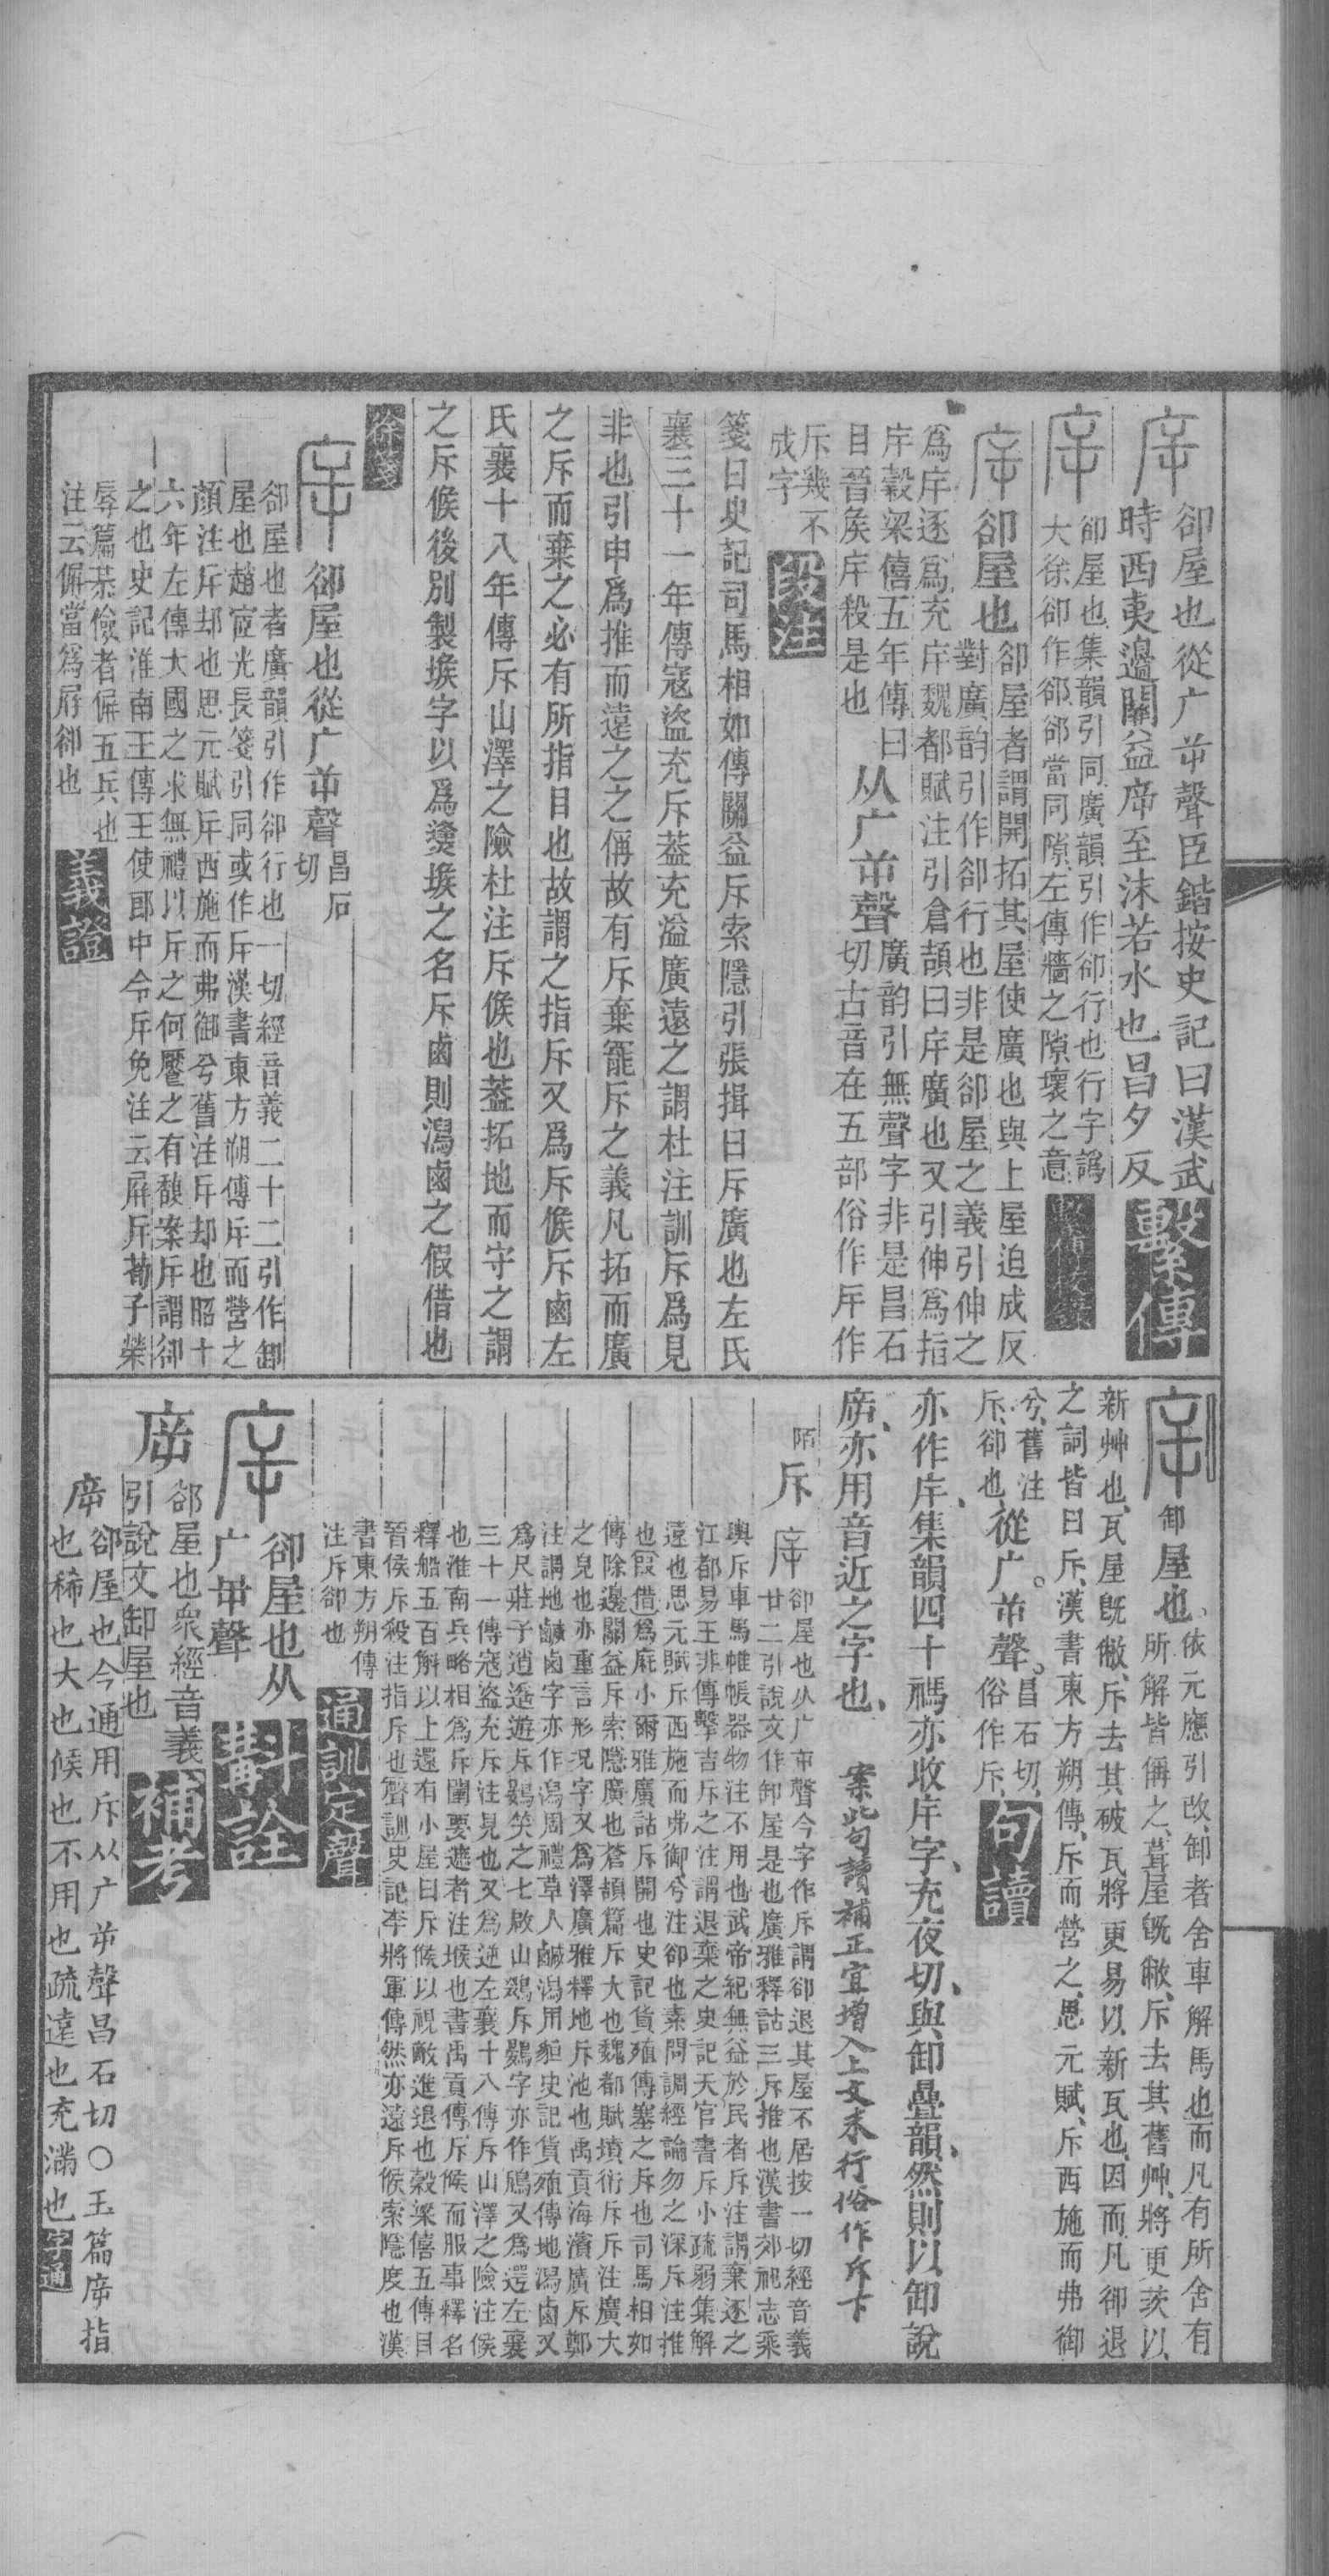 㡿
卻屋也從广屰聲臣鍇按史記曰漢武
時西夷邊關益㡿至沬若水也昌夕反
繫傳
㡿
卻屋也集韻引同廣韻引作卻行也行字譌
大徐卻作郤郤當同隙左傳牆之隙壞之意
繫傳校錄
㡿
卻屋也
卻屋者謂開拓其屋使廣也與上屋迫成反
對廣韵引作卻行也非是卻屋之義引伸之
爲㡿逐爲充㡿魏都賦注引倉頡曰㡿廣也又引伸爲指
㡿穀梁僖五年傳曰
目晉矦㡿殺是也
从广屰聲
廣韵引無聲字非是昌石
切古音在五部俗作斥作
斥幾不
成字
段注
箋曰史記司馬相如傳關益斥索隱引張揖曰斥廣也左氏
襄三十一年傳寇盜充斥葢充溢廣遠之謂杜注訓斥爲見
非也引申爲推而遠之之偁故有斥棄罷斥之義凡拓而廣
之斥而棄之必有所指目也故謂之指斥又爲斥候斥鹵左
氏襄十八年傳斥山澤之險杜注斥候也葢拓地而守之謂
之斥候後別製堠字以爲㷭堠之名斥鹵則潟鹵之假借也
徐箋
㡿
卻屋也從广屰聲
昌石
切
卻屋也者廣韻引作卻行也一切經音義二十二引作卸
屋也趙宧光長箋引同或作斥漢書東方朔傳斥而營之
顏注斥却也思元賦斥西施而弗御兮舊注斥却也昭十
六年左傳大國之求無禮以斥之何饜之有馥案斥謂卻
之也史記淮南王傳王使郎中令斥免注云屛斥荀子榮
辱篇恭儉者偋五兵也
注云偋當爲屛卻也
義證
㡿
卸屋也
依元應引改卸者舍車解馬也而凡有所舍有
所解皆偁之葺屋旣敝斥去其舊艸將更茨以
新艸也瓦屋旣敝斥去其破瓦將更易以新瓦也因而凡卻退
之詞皆曰斥漢書東方朔傳斥而營之思元賦斥西施而弗御
兮舊注
斥卻也
從广屰聲
昌石切
俗作斥
句讀
亦作㡿集韻四十禡亦收㡿字充夜切與卸疊韻然則以卸說
㡿亦用音近之字也
案此句讀補正宜增入上文末行俗作斥下
陌
斥
㡿
卻屋也从广屰聲今字作斥謂卻退其屋不居按一切經音義
廿二引說文作卸屋是也廣雅釋詁三斥推也漢書郊祀志乘
輿斥車馬帷帳器物注不用也武帝紀無益於民者斥注謂棄逐之
江都易王非傳擊吉斥之注謂退棄之史記天官書斥小疏弱集解
遠也思元賦斥西施而弗御兮注卻也素問調經論勿之深斥注推
也叚借爲㡯小爾雅廣詁斥開也史記貨殖傳塞之斥也司馬相如
傳除邊關益斥索隱廣也蒼頡篇斥大也魏都賦墳衍斥斥注廣大
之皃也亦重言形況字又爲澤廣雅釋地斥池也禹貢海濱廣斥鄭
注謂地鹹鹵字亦作潟周禮草人鹹潟用貆史記貨殖傳地潟鹵又
爲尺莊子逍遥遊斥鷃笑之七啟山鵽斥鷃字亦作鴟又爲遻左襄
三十一傳寇盗充斥注見也又爲逆左襄十八傳斥山澤之險注候
也淮南兵略相爲斥闉要遮者注堠也書禹貢傳斥候而服事釋名
釋船五百斛以上還有小屋曰斥候以視敵進退也穀梁僖五傳目
晉侯斥殺注指斥也聲訓史記李將軍傳然亦遠斥候索隱度也漢
書東方朔傳
注斥卻也
通訓定聲
㡿
卻屋也从
广屰聲
斠詮
㡿
卻屋也衆經音義
引說文卸屋也
補考
㡿
卻屋也今通用斥从广屰聲昌石切○玉篇㡿指
也稀也大也候也不用也疏遠也充滿也
字通